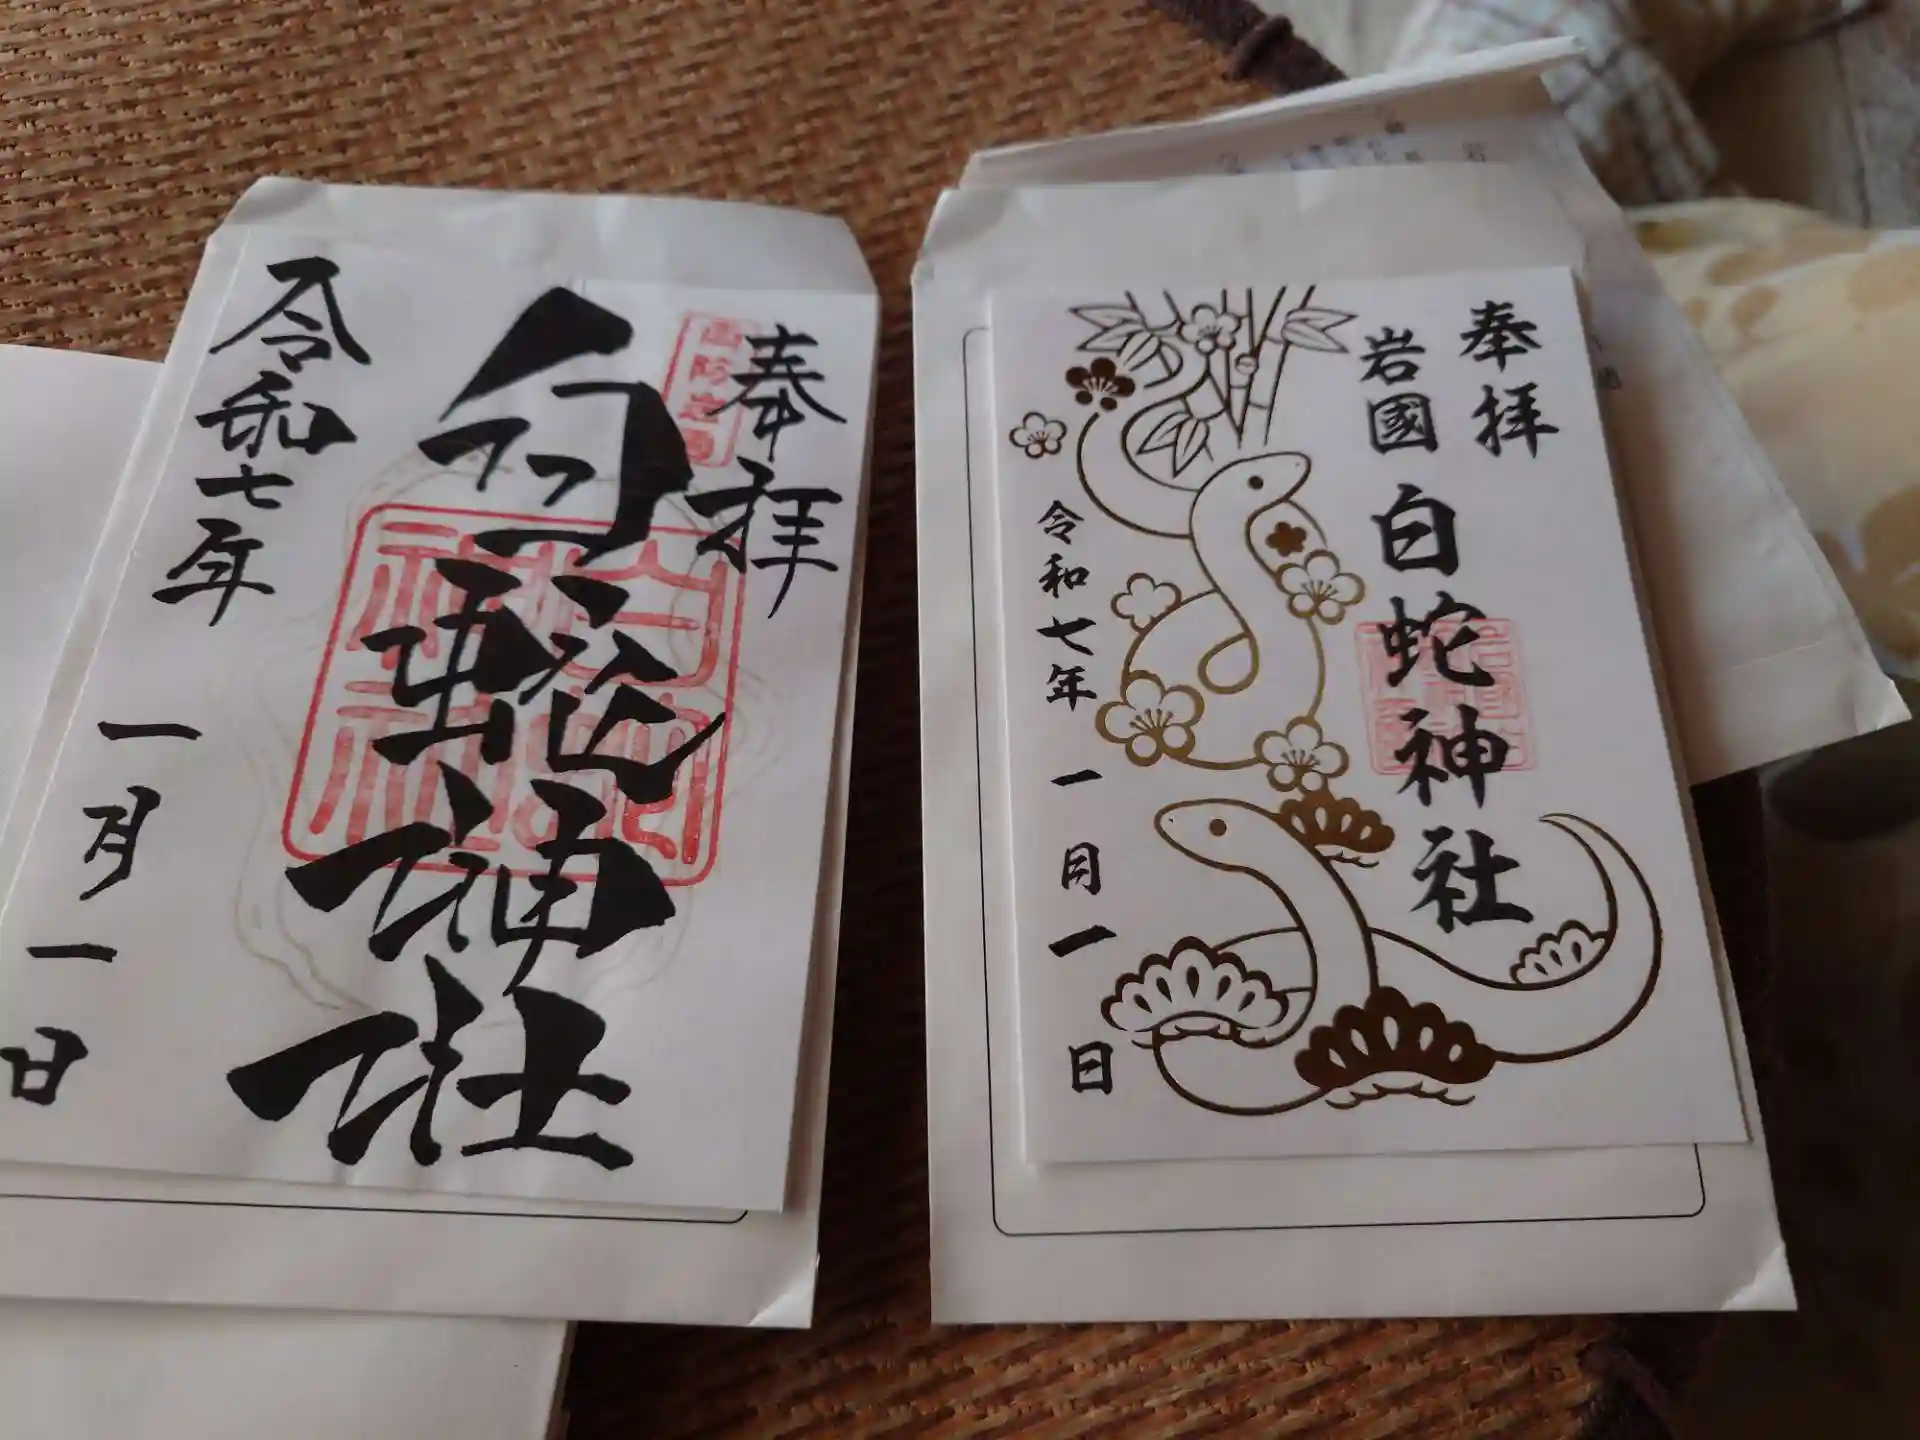 奉拝
白蛇神社
令和七年
一月一日
奉拝
岩國
白蛇神社
令和七年
一月一日